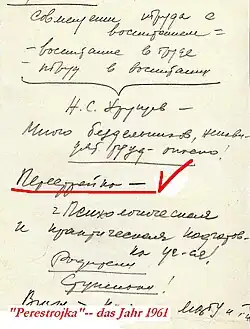 совмещении труда с
воспитанием =
- воспитание в труде
- труд в воспитании
Н.С. Хрущев -
Много бездельников,
труд - опасно!
Перестройка -
Психологическая
и практическая подготов-
ка уч-ся!
Родители
"Perestrojka"-- das Jahr 1961